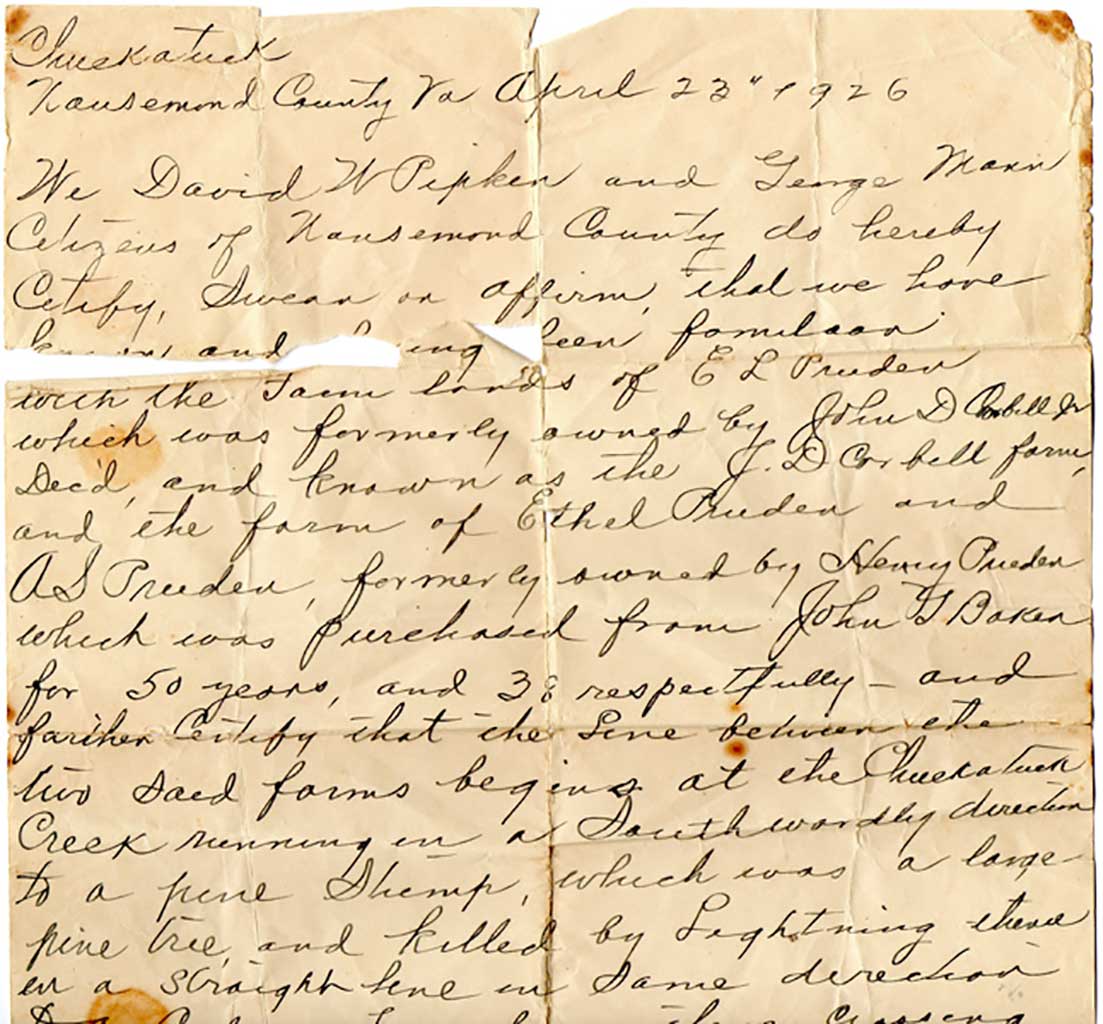 Chuckatuck
Nansemond County Va April 23" 1926
We David W Pipken and George Mann
Citizens of Nansemond County do hereby
Cetify, Swear or affirm, that we have
known and being been familiar
with the Farm lands of E L Pruden
which was formerly owned by John D Corbell Jr
Dec'd, and known as the J. D Corbell farm,
and the farm of Ethel Pruden and
A S Pruden, formerly owned by Henry Pruden
which was purchased from John G Baker
for 50 years, and 38 respectfully - and
farther Certify that the Line between the
two Said farms begins at the Chuckatuck
Creek running in a Southwardly direction
to a pine Stump, which was a large
pine tree, and killed by Lightning thence
in a straight line in Same direction